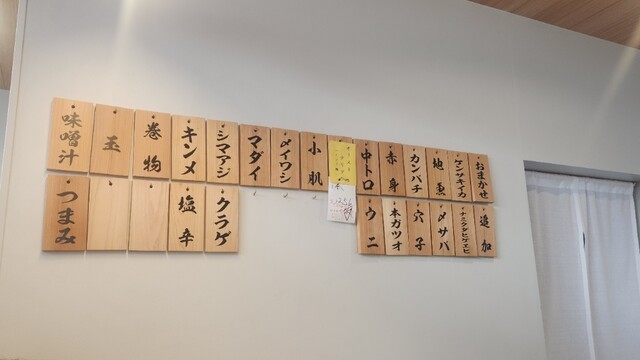 おまかせ
ケンサキイカ
地魚
カンパチ
赤身
中トロ
小肌
〆イワシ
マダイ
シマアジ
キンメ
巻物
玉
味噌汁
追加
〆サバ
穴子
本ガツオ
ウニ
クラゲ
塩辛
つまみ